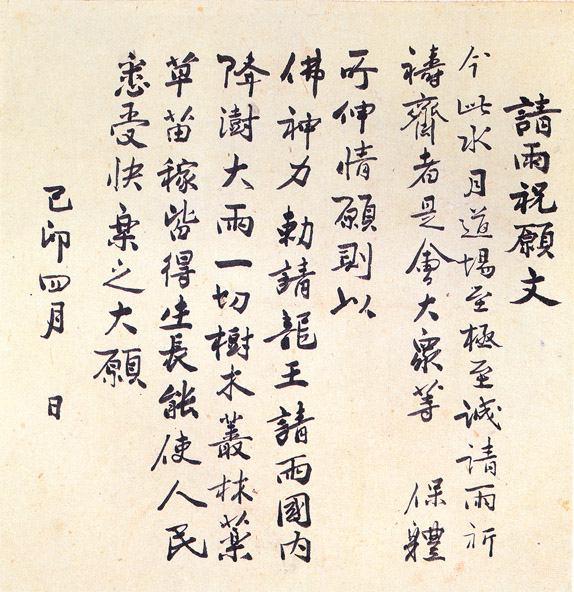 請雨祝願文
今此水月道場至極至誠請雨祈
禱齊者是會大衆等 保體
所伸情願則以
佛神力勅請龍王請雨國内
降澍大雨一切樹木叢林藥
草苗稼皆得生長能使人民
悉受快樂之大願
己卯四月 日